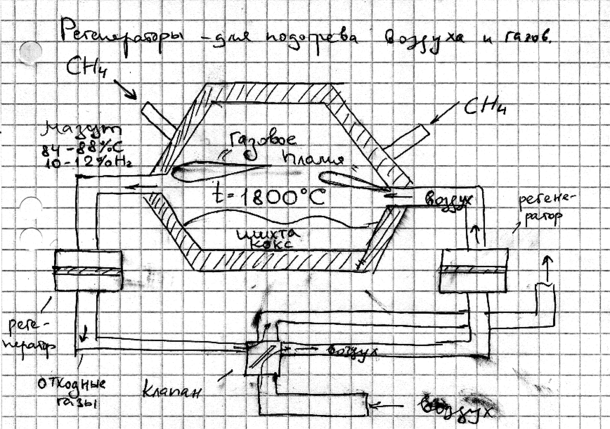 Регенераторы – для подогрева воздуха и газов.
CH₄
CH₄
Мазут
84-88%C
10-12%H₂
газовое
пламя
t = 1800°C
воздух
шихта
кокс
регене-
ратор
реге-
нератор
отходные
газы
Клапан
воздух
воздух